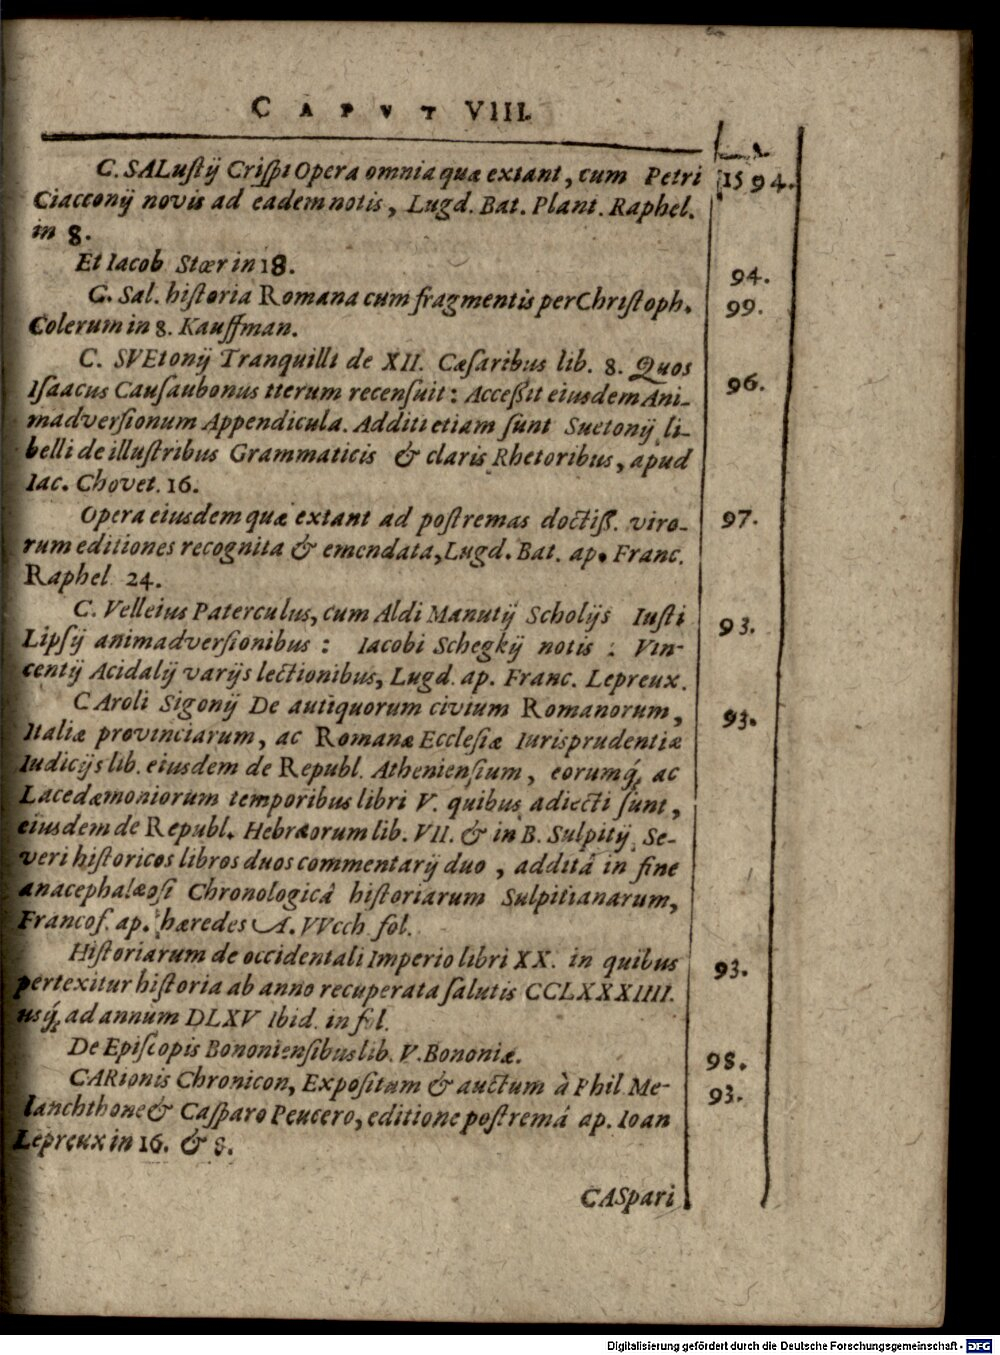 CAPVT VIII.
C. SALustij Crispi Opera omnia quæ extant, cum Petri 1594.
Ciacconij novis ad eadem notis, Lugd. Bat. Plant. Raphel.
in 8.
Et Iacob Stœr in 18. 94.
C. Sal. historia Romana cum fragmentis per Christoph. 99.
Colerum in 8. Kauffman.
C. SVEtonij Tranquilli de XII. Cæsaribus lib. 8. Quos
Isaacus Causaubonus iterum recensuit: Acceßit eiusdem Ani- 96.
madversionum Appendicula. Additi etiam sunt Suetonij li-
belli de illustribus Grammaticis & claris Rhetoribus, apud
Iac. Chovet. 16.
Opera eiusdem quæ extant ad postremas doctiß. viro- 97.
rum editiones recognita & emendata, Lugd. Bat. ap. Franc.
Raphel 24.
C. Velleius Paterculus, cum Aldi Manutij Scholijs Iusti 93.
Lipsij animadversionibus: Iacobi Schegkij notis: Vin-
centij Acidalij varijs lectionibus, Lugd. ap. Franc. Lepreux.
CAroli Sigonij De antiquorum civium Romanorum, 93.
Italiæ provinciarum, ac Romanæ Ecclesiæ Iurisprudentiæ
Iudicijs lib. eiusdem de Republ. Atheniensium, eorumq́; ac
Lacedæmoniorum temporibus libri V. quibus adiecti sunt,
eiusdem de Republ. Hebræorum lib. VII. & in B. Sulpitij Se-
veri historicos libros duos commentarij duo, additâ in fine
anacephalæosi Chronologicâ historiarum Sulpitianarum,
Francof. ap. hæredes A. VVech fol.
Historiarum de occidentali Imperio libri XX. in quibus 93.
pertexitur historia ab anno recuperata salutis CCLXXXIIII.
usq́; ad annum DLXV Ibid. in fol.
De Episcopis Bononiensibus lib. V. Bononiæ. 98.
CARionis Chronicon, Expositum & auctum à Phil Me- 93.
lanchthone & Casparo Peucero, editione postremâ ap. Ioan
Lepreux in 16. & 8.
CASpari
Digitalisierung gefördert durch die Deutsche Forschungsgemeinschaft - DFG